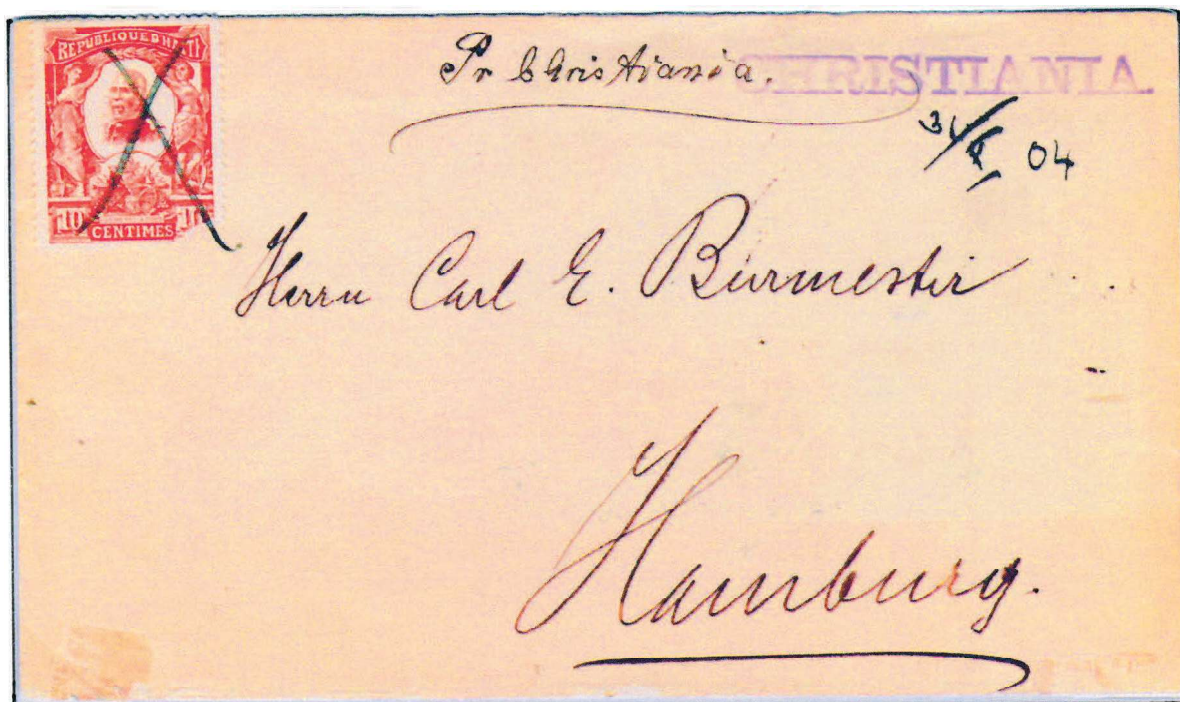 REPUBLIQUE D'HAITI
10 10
CENTIMES
Pr Christiania.
CHRISTIANIA.
04
Herrn Carl E. Burmester
Hamburg.